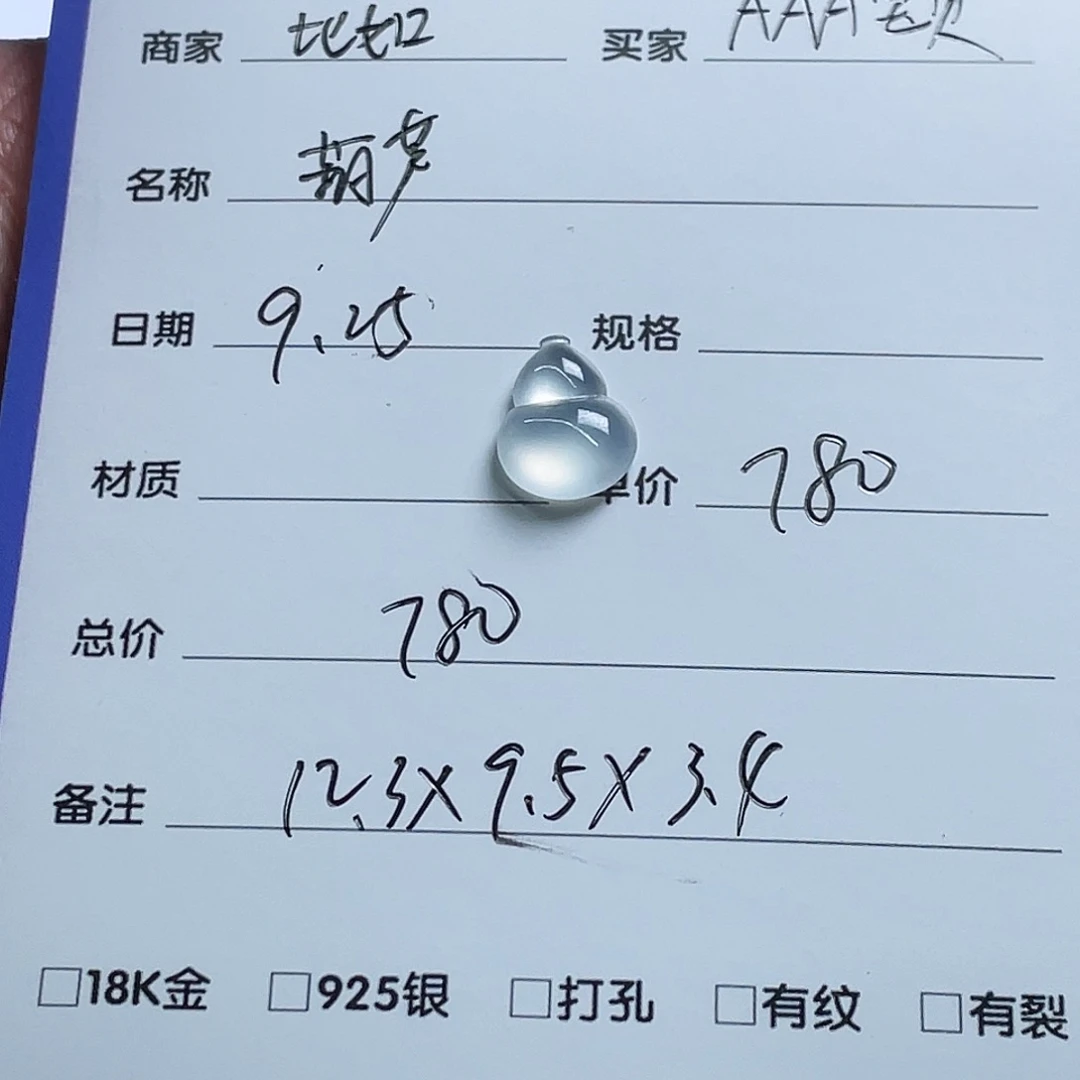 商家 买家 AAA
名称 葫芦
日期 9.25 规格
材质 单价 780
总价 780
备注 12.3X9.5X3.4
□18K金 □925银 □打孔 □有纹 □有裂